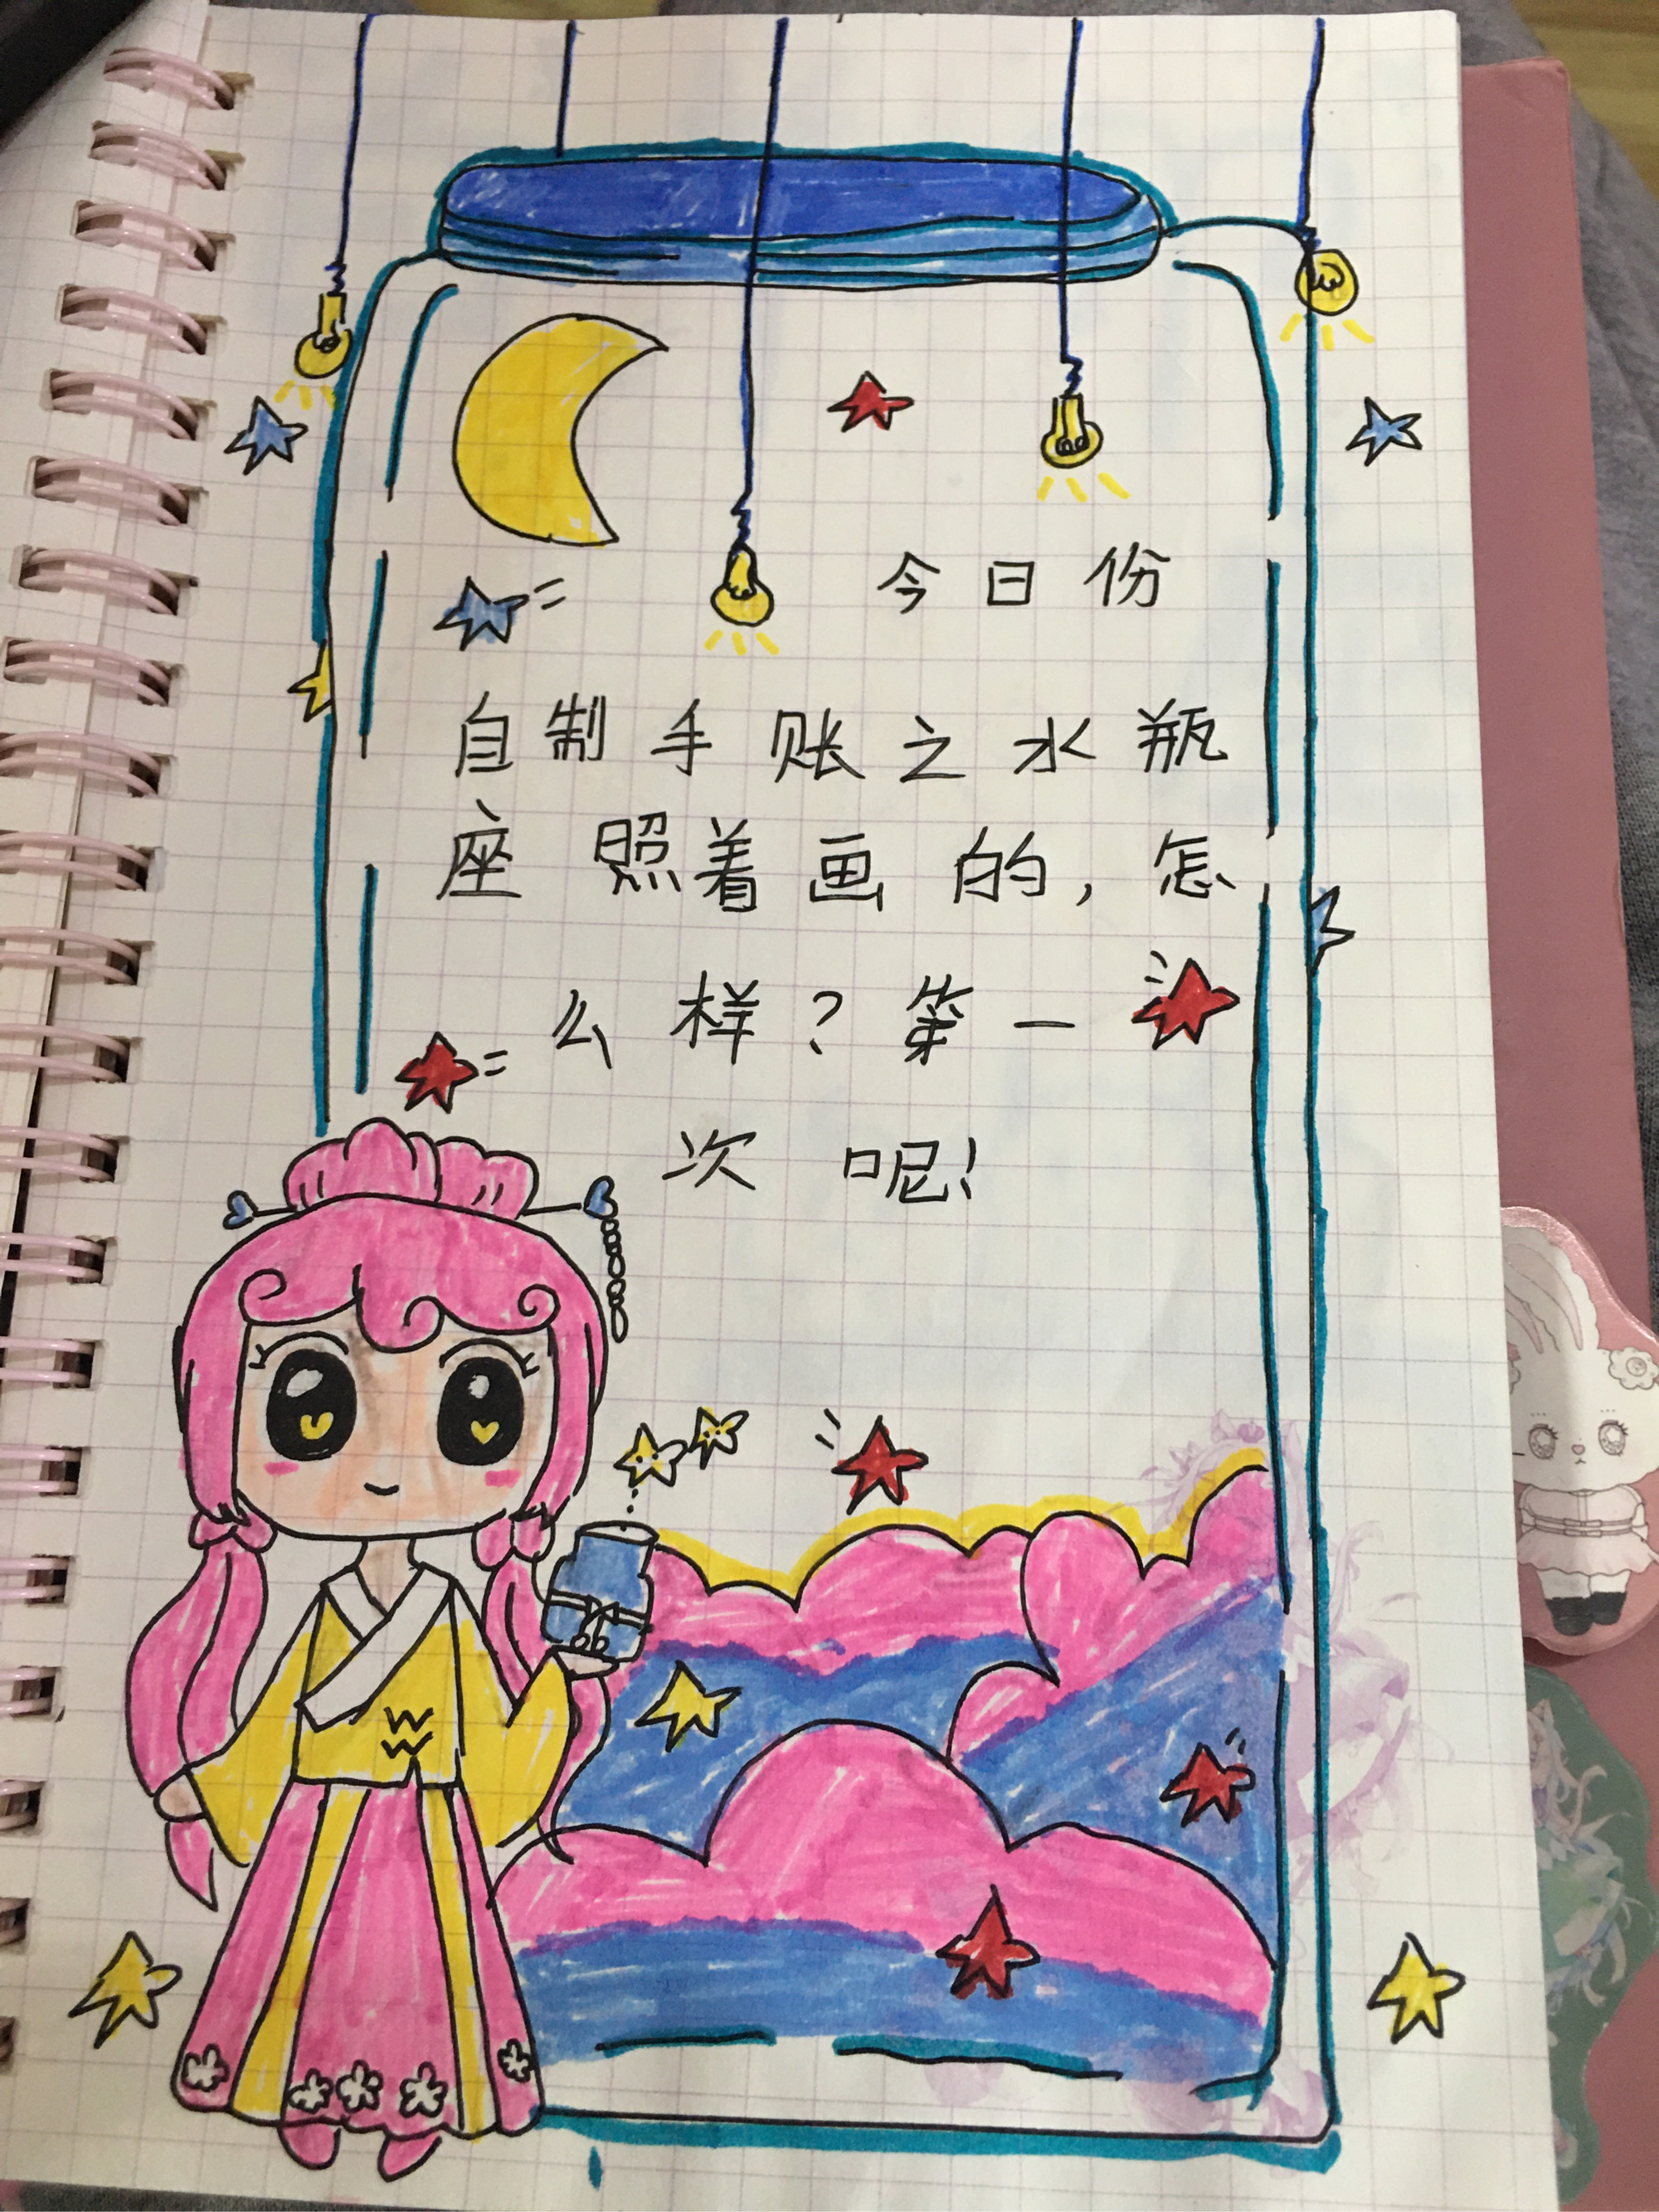 今日份
自制手账之水瓶
座照着画的，怎
么样？第一
次呢！